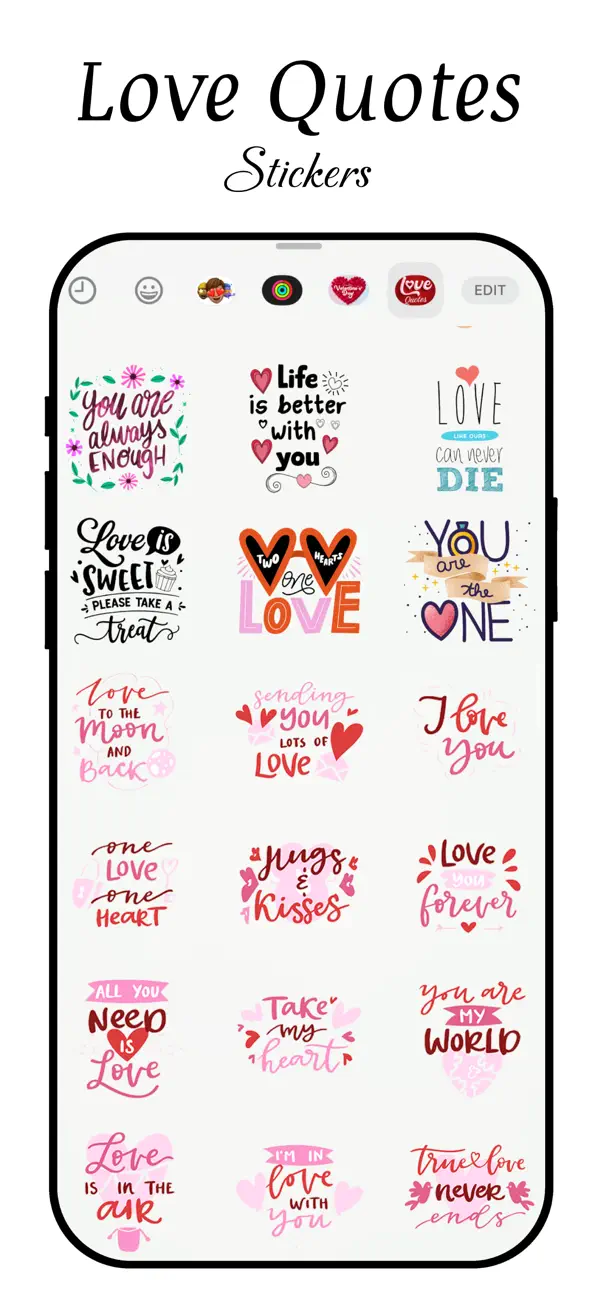 Love Quotes
Stickers
Valentine's
Day
Love
Quotes
EDIT
You are
always
ENOUGH
Life
is better
with
you
LOVE
LIKE OURS
can never
DIE
Love is
SWEET
PLEASE TAKE A
treat
TWO HEARTS
one
LOVE
YOU
are
the
ONE
Love
TO THE
Moon
AND
Back
sending
you
LOTS OF
LOVE
I love
you
one
LOVE
one
HEART
Hugs
&
Kisses
LOVE
YOU
forever
ALL YOU
NEED
IS
Love
TAKE
my
heart
you are
MY
WORLD
Love
IS IN THE
AIR
I'M IN
love
WITH
you
true love
never
ends